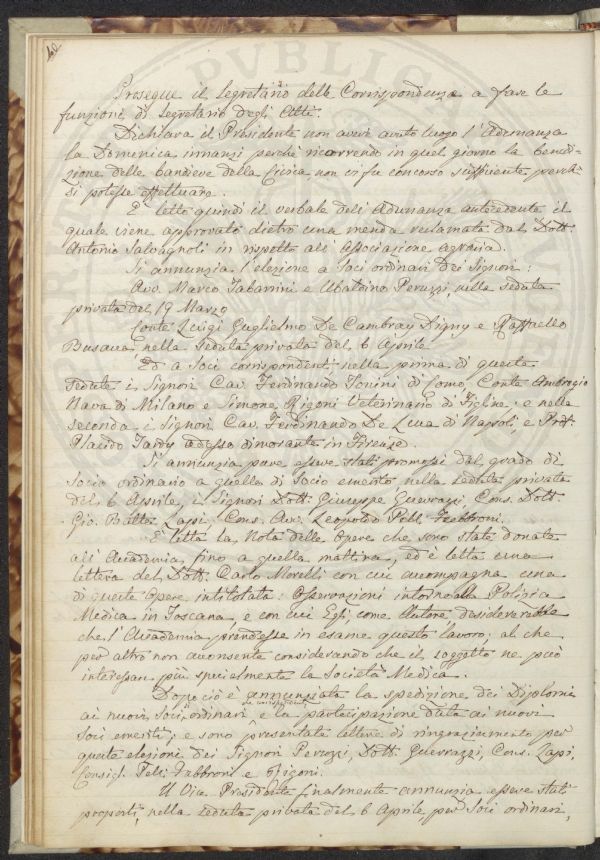 40
Prosegue il Segretario delle Corrispondenze a fare le
funzioni di Segretario degli Atti.
Dichiara il Presidente non avere avuto luogo l'Adunanza
la Domenica innanzi perché ricorrendo in quel giorno la benedi=
zione delle bandiere della Civica non vi fu concorso sufficiente perché
si potesse effettuare.
È letto quindi il verbale dell'Adunanza antecedente il
quale viene approvato dietro una menda reclamata dal Dott.
Antonio Salvagnoli in rispetto all'Associazione agraria.
Si annunzia l'elezione a Soci ordinari dei Signori:
Avv. Marco Tabarrini e Ubaldino Peruzzi, nella seduta
privata del 19 Marzo
Conte Luigi Guglielmo De Cambray Digny e Raffaello
Busacca nella seduta privata del 6 Aprile.
Ed a Soci corrispondenti nella prima di queste
sedute i Signori Cav. Ferdinando Tonini di Como, Conte Ambrogio
Nava di Milano e Simone Rigoni Veterinario di Figline; e nella
seconda i Signori Cav. Ferdinando De Luca di Napoli, e Prof.
Placido Tardy adesso dimorante in Firenze.
Si annunzia pure essere stati promossi dal grado di
Socio ordinario a quello di Socio emerito nella seduta privata
del 6 Aprile, i Signori Dott. Giuseppe Guerrazzi, Cons. Dott.
Gio. Batta. Lapi, Cons. Avv. Leopoldo Pelli Fabbroni.
È letta la Nota delle Opere che sono state donate
all'Accademia, fino a quella mattina, ed è letta una
lettera del Dott. Carlo Morelli con cui accompagna una
di queste Opere intitolata: Osservazioni intorno alla Polizia
Medica in Toscana, e con cui Egli, come Autore, desidererebbe
che l'Accademia prendesse in esame questo lavoro; al che
per altro non acconsente considerando che il soggetto ne può
interessare più specialmente la Società Medica.
Dopo ciò è annunziata la spedizione dei Diplomi
ai nuovi Soci, ordinari e corrispondenti, e la partecipazione data ai nuovi
Soci emeriti; e sono presentate lettere di ringraziamento per
queste elezioni dei Signori Peruzzi, Dott. Guerrazzi, Cons. Lapi,
Consigl. Pelli Fabbroni e Rigoni.
Il Vice Presidente finalmente annunzia essere stati
proposti, nella seduta privata del 6 Aprile, per Soci ordinari,